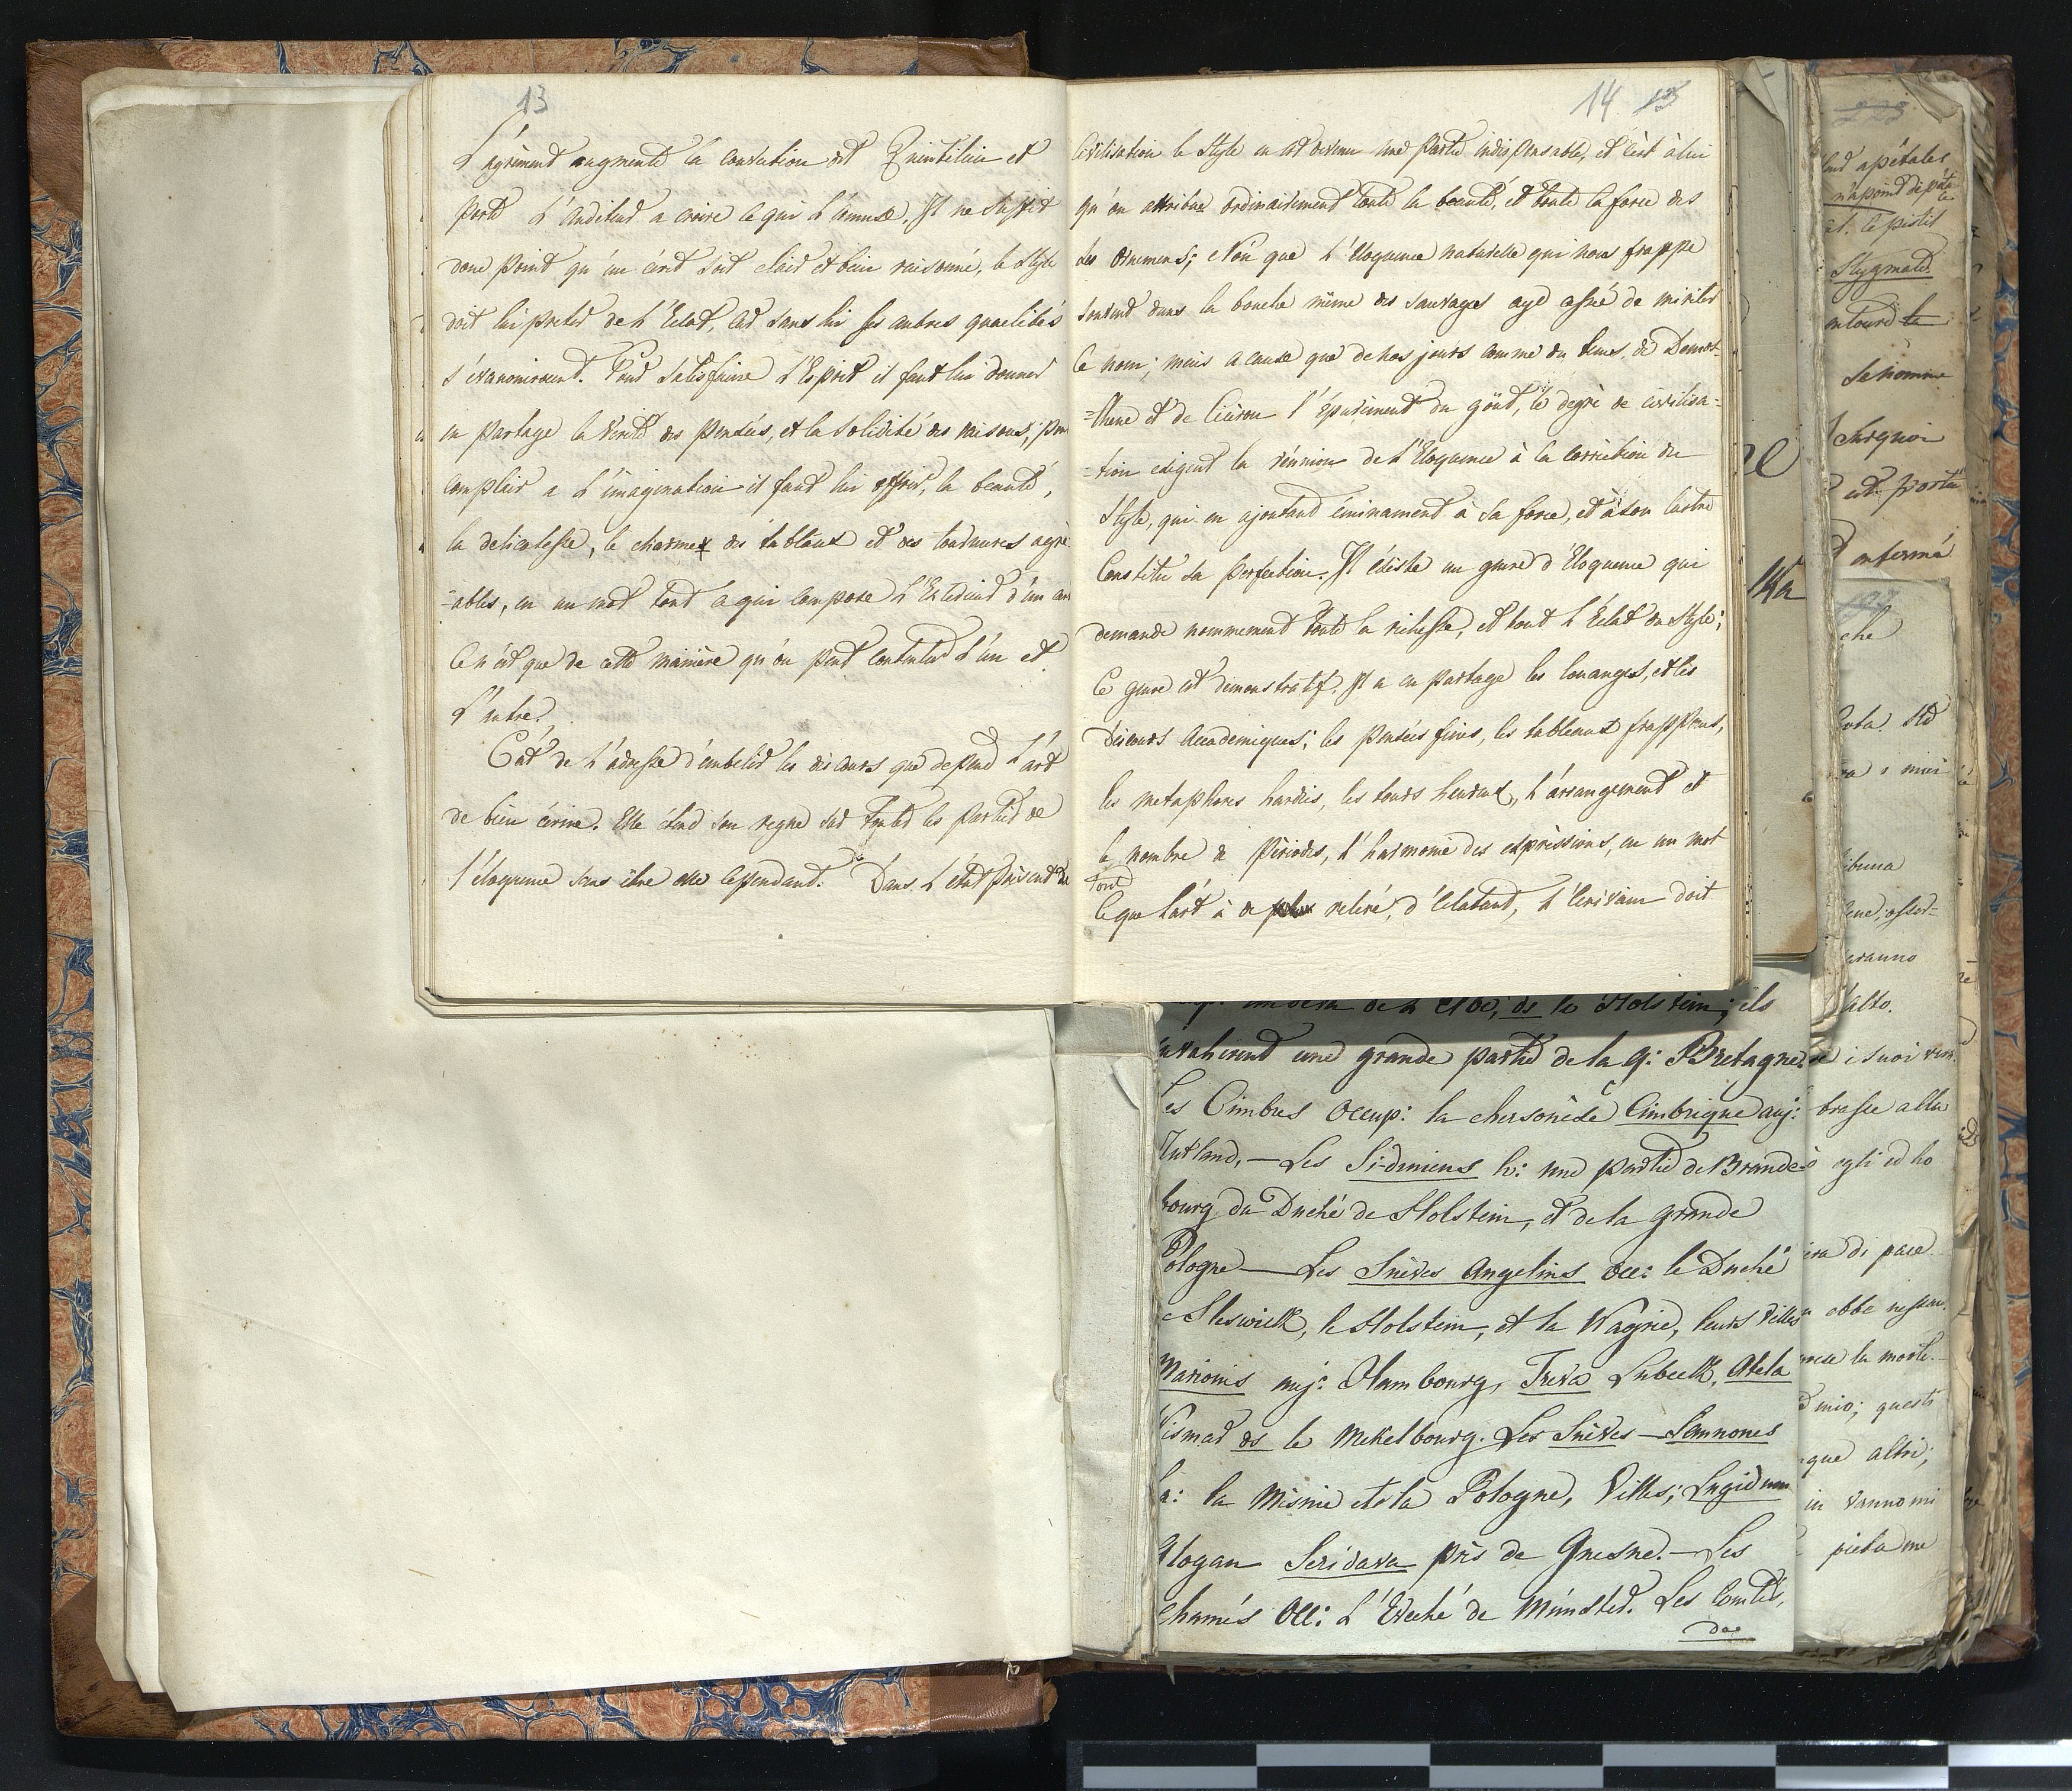 13
L'agrément augmente la conviction dit Quintilien et
porte l'Auditeur a croire ce qui l'amuse. Il ne suffit
donc point qu'un écrit soit clair et bien raisonné, le style
doit lui preter de l'Eclat, car sans lui ses autres quaelités
s'evanouissent. Pour satisfaire l'Esprit il faut lui donner
en partage la verité des pensées, et la solidité des raisons; pour
complaire a l'imagination il faut lui offrir, la beauté,
la delicatesse, le charme des tableaux et des tournures agré-
-ables, en un mot tout ce qui compose l'Exterieur d'un
Ce n'est que de cette manière qu'on peut contenter l'un et
l'autre.
C'est de l'adresse d'embelir les discours que depend l'art
de bien écrire. Elle étend son regne sur toutes les parties de
l'éloquence sans être elle cependant. Dans l'état présent de
14 13
civilisation le Style en est devenu une partie indispensable, et c'est à lui
qu'on attribue ordinairement toute la beauté, et toute la force des
ses ornemens; Non que l'Eloquence naturelle qui nous frappe
souvent dans la bouche même des sauvages aye cessé de meriter
ce nom; mais a cause que de nos jours comme du tems de Démos-
=thene et de Ciceron l'épurement du goût, le degré de civilisa=
=tion exigent la réunion de l'Eloquence à la correction du
Style, qui en ajoutant éminament à sa force, et à son lustre
Constitue sa perfection. Il éxiste un genre d'Eloquence qui
demande nommement toute la richesse, et tout l'Eclat du Style;
Ce genre est démonstratif. Il a en partage les louanges, et les
discours Academiques; les pensées fines, les tableaux frappans,
les metaphores hardies, les tours heureux, l'arrangement et
le nombre de Périodes, l'harmonie des expressions, en un mot
tout
ce que l'art à de relevé, d'éclatant, l'Ecrivain doit
de l'Elbe, ds le Holstein; ils
envahirent une grande partie de la g: Bretagne.
Les Cimbres Occup: la chersonèse Cimbrique auj:
Jutland, — Les Si-diniens h: une partie de Brande-
bourg du Duché de Holstein, et de la grande
Pologne — Les Suèves Angelins occ: le Duché
Sleswick, le Holstein, et la Wagrie, leurs villes
Marionis auj: Hambourg, Treva Lubeck, Alela
Vismar ds le Mekelbourg. Les Suèves — Semnones
h: la Misnie et la Pologne, Villes; Lugidunum
Glogau Seridava près de Gnesne. — Les
Chamés Occ: l'Eveché de Münster. Les
223
apétales
n'a point de
et. le pistil
Stygmate
entouré
Se nomme
Surquoi
est porté
enfermé
14a
alto.
i suoi
alla
egli ed ho
di pace
ebbe
la morte.
mio; questi
que altri;
in vanno mi